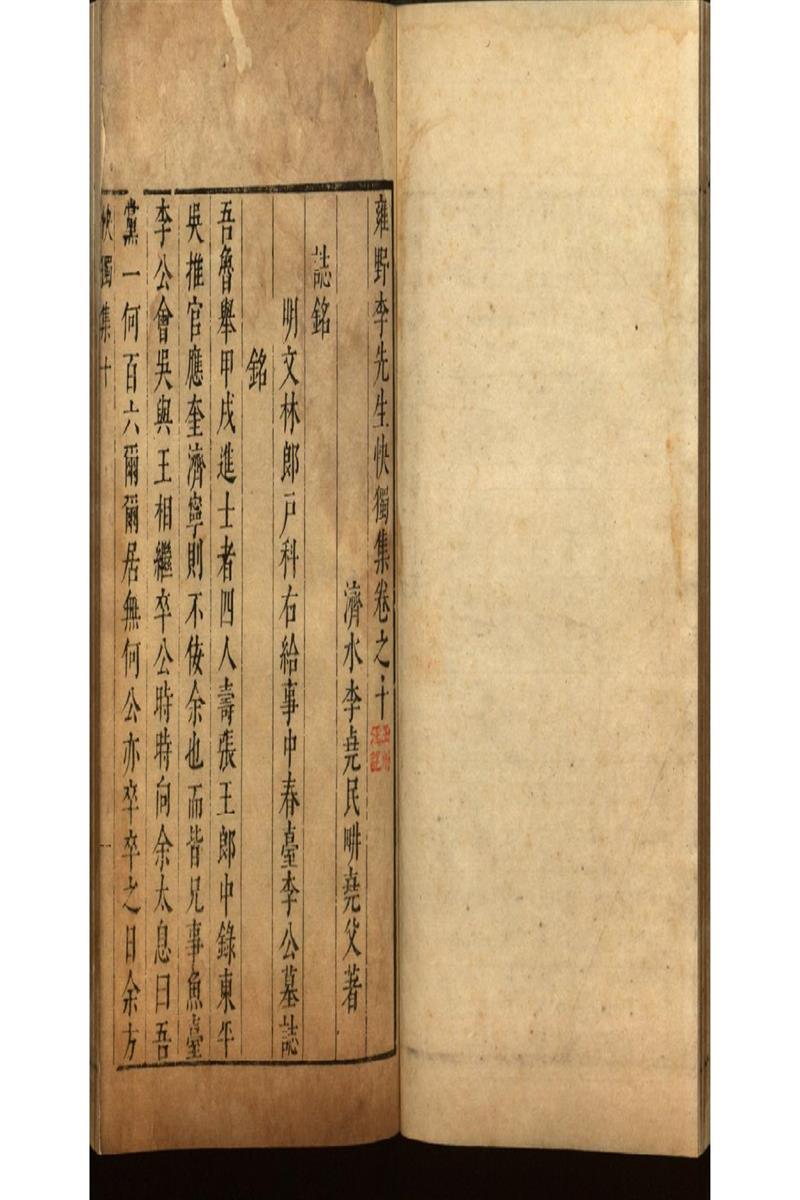 雍野李先生快獨集卷之十
濟水李堯民畊堯父著
誌銘
明文林郎戶科右給事中春臺李公墓誌
銘
吾魯舉甲戌進士者四人壽張王郎中錄東平
吳推官應奎濟寧則不佞余也而皆兄事魚臺
李公會吳與王相繼卒公時時向余太息曰吾
黨一何百六爾爾居無何公亦卒卒之日余方
快獨集十
一